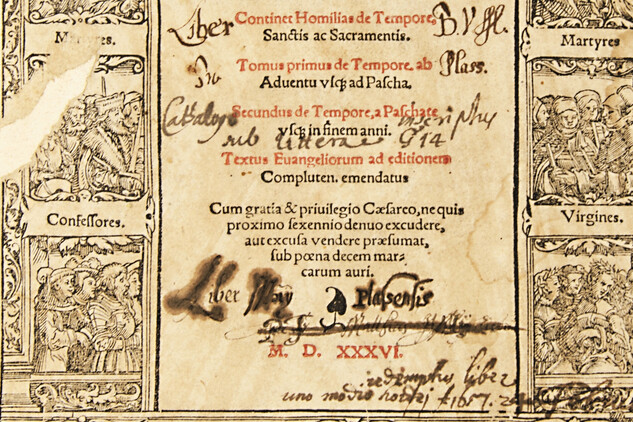 Continet Homilias de Tempore,
Sanctis ac Sacramentis.
Liber
B. V
Martyres.
Martyres
Tomus primus de Tempore. ab
Aduentu vsq; ad Pascha.
Plass.
Secundus de Tempore, a Paschate
vsq; in finem anni.
Catalogo inscriptus
sub littera G 14
Textus Euangeliorum ad editionem
Compluten. emendatus
Confessores.
Virgines.
Cum gratia & priuilegio Cæsareo, ne quis
proximo sexennio denuo excudere,
aut excusa vendere præsumat,
sub pœna decem mar-
carum auri.
Liber Plassensis
M. D. XXXVI.
redemptus liber
uno modio 1657.